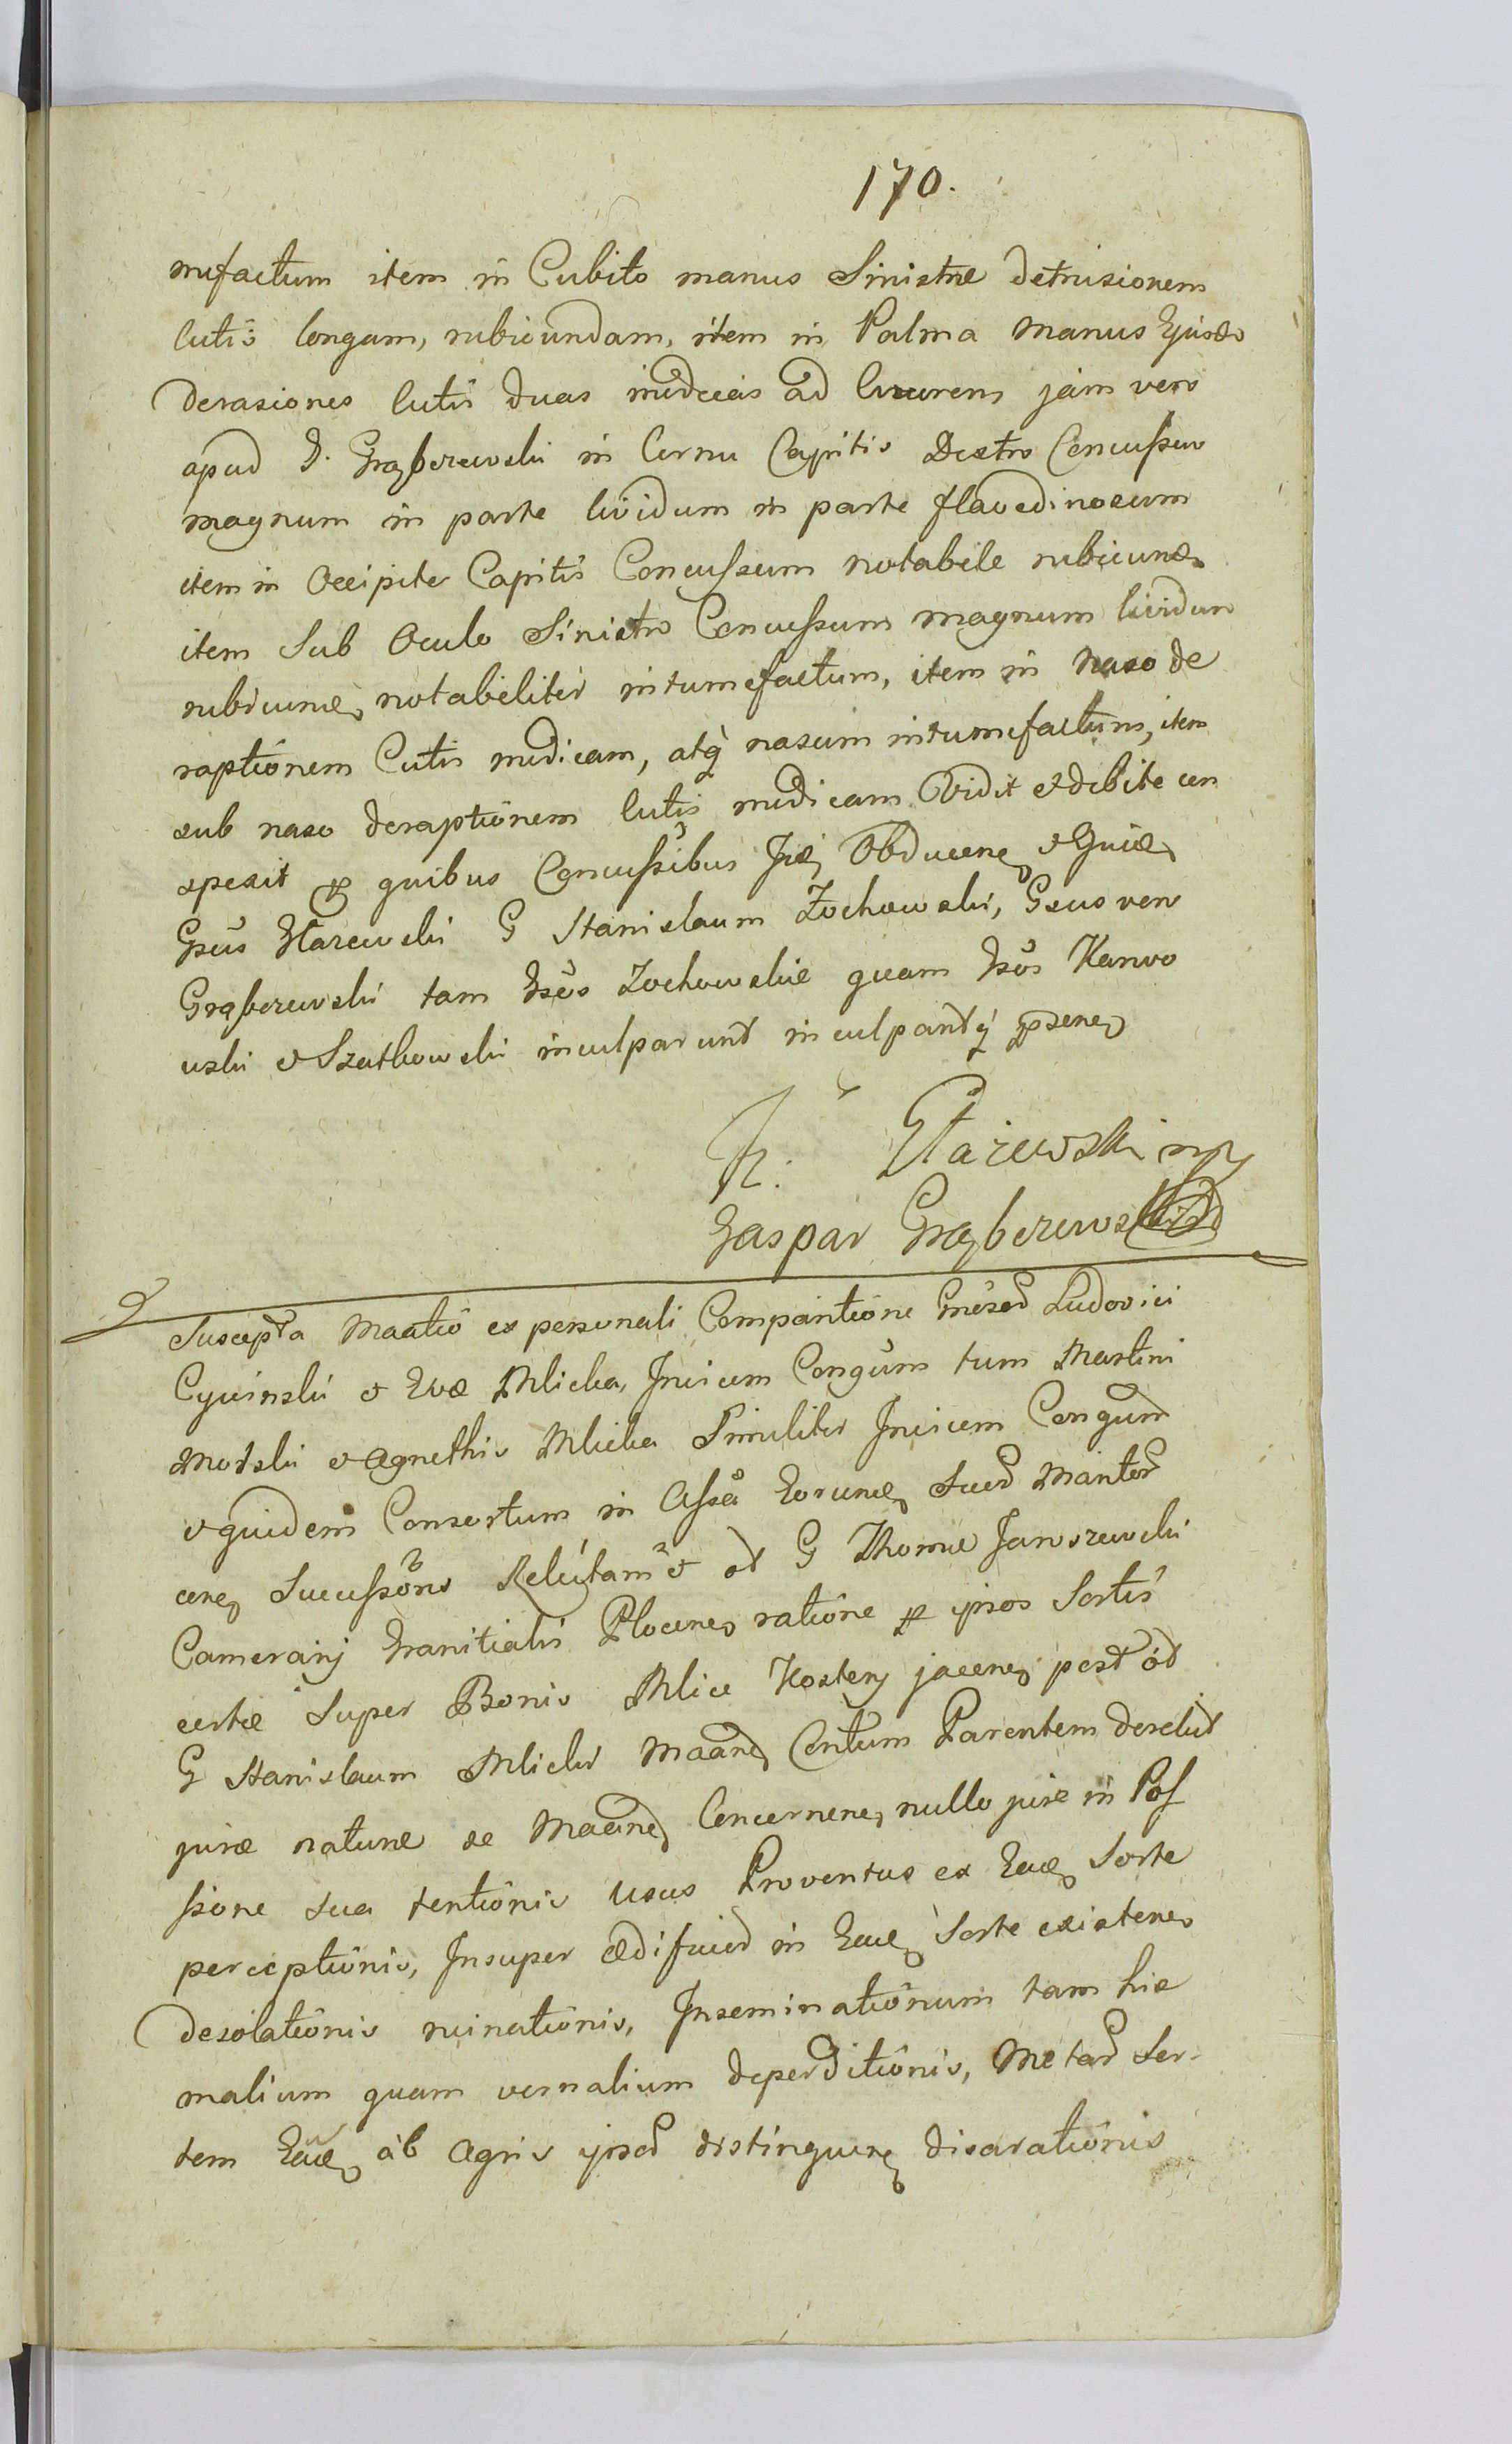 170.
mefactum item in Cubito manus Sinistræ detrusionem
Cutis longam, rubicundam, item in Palma Manus Ejusd
Derasiones Cutis duas modicas ad livorem jam vero
apud G. Grąbczewski in Cornu Capitis Dextro Concussum
magnum in parte lividum in parte flavedinosum
item in Occipite Capitis Concussum notabile rubicund
item Sub Oculo Sinistro Concussum magnum lividum
rubicund notabiliter intumefactum, item in Naso de
raptionem Cutis modicam, atq nasum intumefactum, item
sub naso deraptionem Cutis modicam Vidit et debite con
spexit pro quibus Concussibus Obducen
Gsus Starewski G Stanislaum Żochowski, Gsus vero
Grąbczewski tam Gsos Żochowskie quam Gsos Karwo
wski et Szatkowski inculparunt inculpantq pnsen
Starewski mp
Gaspar Grąbczewski
Suscepta Maatio ex personali Comparitione Gnosor Ludovici
Cywinski et Evæ Mlicka, Invicem Congum tum Martini
Morski et Agnethis Mlicka Similiter Invicem Congum
et quidem Consortum in Assa Eorund Suor Maritor
Successoris Relictam et ad G Thomæ Jaroszewski
Camerarij Granitialis Plocen ratione pro ipsos Sortis
certæ Super Bonis Mlice Kostery jacen post od
G Stanislaum Mlicki Maand Parentem derelict
jure naturæ se Maand Concernen, nullo jure in Pos
ssione sua tentionis Usus Proventus ex Ead Sorte
perceptionis, Insuper Ædificior in Ead Sorte existen
Desolationis ruinationis, Inseminationum tam hie
malium quam vernalium deperditionis, Metar Sor-
tem Eand ab Agris ipsor distinguen disarationis